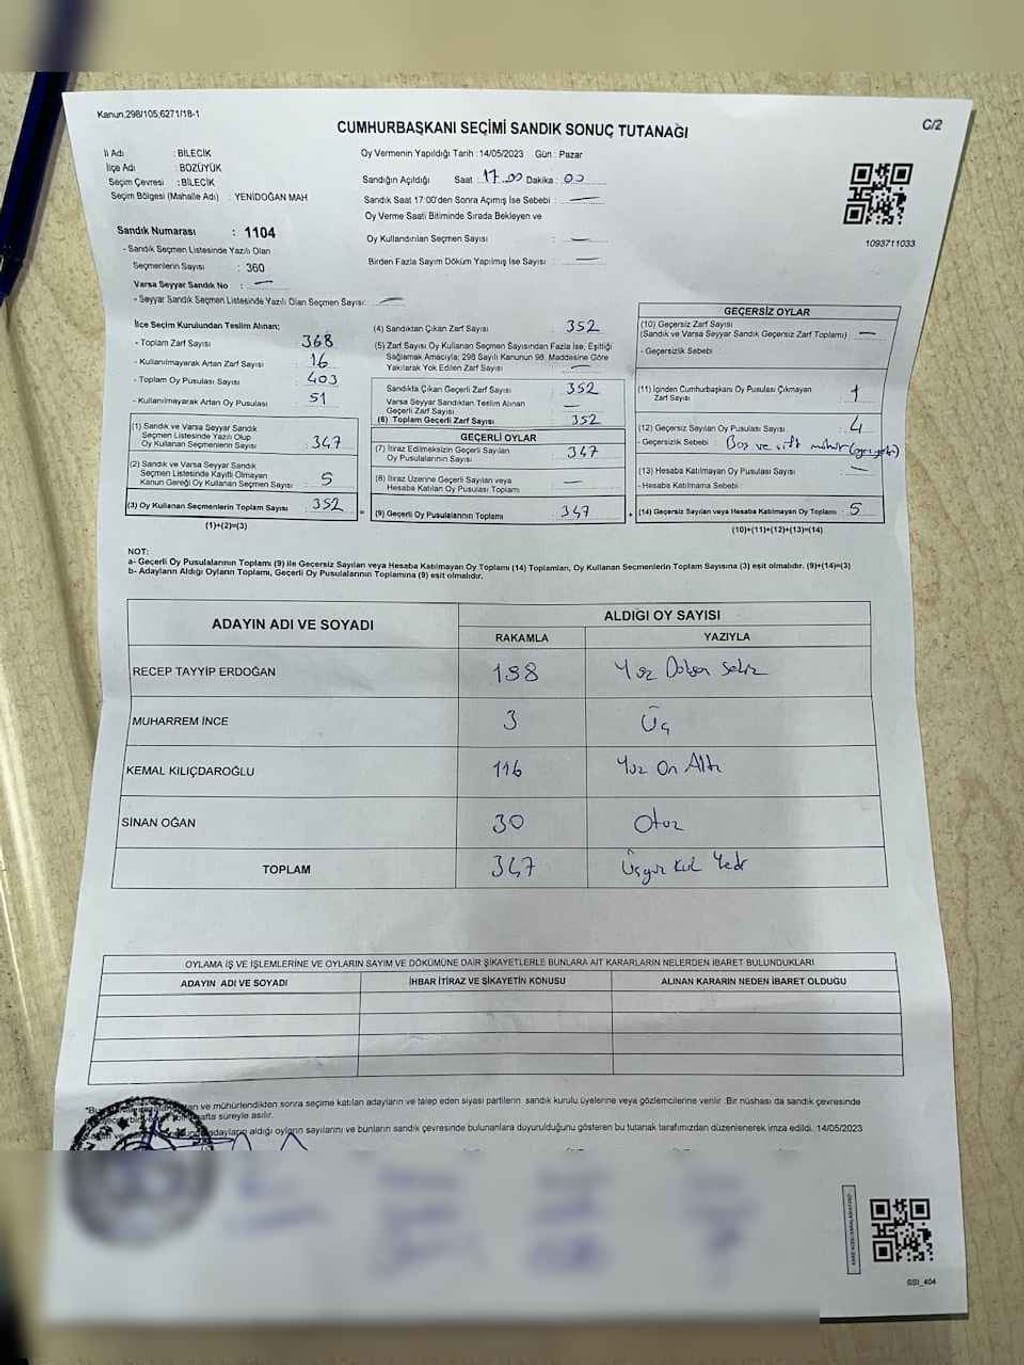 Kanun,298/105,6271/18-1
CUMHURBAŞKANI SEÇİMİ SANDIK SONUÇ TUTANAĞI
C/2
İl Adı : BİLECİK
İlçe Adı : BOZÜYÜK
Seçim Çevresi : BİLECİK
Seçim Bölgesi (Mahalle Adı) : YENİDOĞAN MAH
Oy Vermenin Yapıldığı Tarih : 14/05/2023 Gün : Pazar
Sandığın Açıldığı Saat 17.00 Dakika : 00
Sandık Saat 17:00'den Sonra Açımış İse Sebebi : —
Oy Verme Saati Bitiminde Sırada Bekleyen ve
Oy Kullandırılan Seçmen Sayısı : —
Birden Fazla Sayım Döküm Yapılmış İse Sayısı : —
1093711033
Sandık Numarası : 1104
- Sandık Seçmen Listesinde Yazılı Olan
Seçmenlerin Sayısı : 360
Varsa Seyyar Sandık No : —
- Seyyar Sandık Seçmen Listesinde Yazılı Olan Seçmen Sayısı: —
İlçe Seçim Kurulundan Teslim Alınan;
- Toplam Zarf Sayısı : 368
- Kullanılmayarak Artan Zarf Sayısı : 16
- Toplam Oy Pusulası Sayısı : 403
- Kullanılmayarak Artan Oy Pusulası : 51
(1) Sandık ve Varsa Seyyar Sandık
Seçmen Listesinde Yazılı Olup
Oy Kullanan Seçmenlerin Sayısı : 347
(2) Sandık ve Varsa Seyyar Sandık
Seçmen Listesinde Kayıtlı Olmayan
Kanun Gereği Oy Kullanan Seçmen Sayısı : 5
(3) Oy Kullanan Seçmenlerin Toplam Sayısı : 352
(1)+(2)=(3)
(4) Sandıktan Çıkan Zarf Sayısı : 352
(5) Zarf Sayısı Oy Kullanan Seçmen Sayısından Fazla İse, Eşitliği
Sağlamak Amacıyla; 298 Sayılı Kanunun 98. Maddesine Göre
Yakılarak Yok Edilen Zarf Sayısı : —
Sandıkta Çıkan Geçerli Zarf Sayısı : 352
Varsa Seyyar Sandıktan Teslim Alınan
Geçerli Zarf Sayısı : —
(6) Toplam Geçerli Zarf Sayısı : 352
GEÇERLİ OYLAR
(7) İtiraz Edilmeksizin Geçerli Sayılan
Oy Pusulalarının Sayısı : 347
(8) İtiraz Üzerine Geçerli Sayılan veya
Hesaba Katılan Oy Pusulası Toplamı : —
= (9) Geçerli Oy Pusulalarının Toplamı : 347
GEÇERSİZ OYLAR
(10) Geçersiz Zarf Sayısı
(Sandık ve Varsa Seyyar Sandık Geçersiz Zarf Toplamı) : —
- Geçersizlik Sebebi :
(11) İçinden Cumhurbaşkanı Oy Pusulası Çıkmayan
Zarf Sayısı : 1
(12) Geçersiz Sayılan Oy Pusulası Sayısı : 4
- Geçersizlik Sebebi : Boş ve çift mühür
(13) Hesaba Katılmayan Oy Pusulası Sayısı : —
- Hesaba Katılmama Sebebi :
+ (14) Geçersiz Sayılan veya Hesaba Katılmayan Oy Toplamı : 5
(10)+(11)+(12)+(13)=(14)
NOT:
a- Geçerli Oy Pusulalarının Toplamı (9) ile Geçersiz Sayılan veya Hesaba Katılmayan Oy Toplamı (14) Toplamları, Oy Kullanan Seçmenlerin Toplam Sayısına (3) eşit olmalıdır. (9)+(14)=(3)
b- Adayların Aldığı Oyların Toplamı, Geçerli Oy Pusulalarının Toplamına (9) eşit olmalıdır.
ADAYIN ADI VE SOYADI
ALDIĞI OY SAYISI
RAKAMLA YAZIYLA
RECEP TAYYİP ERDOĞAN 198 Yüz Doksan Sekiz
MUHARREM İNCE 3 Üç
KEMAL KILIÇDAROĞLU 116 Yüz On Altı
SİNAN OĞAN 30 Otuz
TOPLAM 347 Üçyüz Kırk Yedi
OYLAMA İŞ VE İŞLEMLERİNE VE OYLARIN SAYIM VE DÖKÜMÜNE DAİR ŞİKAYETLERLE BUNLARA AİT KARARLARIN NELERDEN İBARET BULUNDUKLARI
ADAYIN ADI VE SOYADI İHBAR İTİRAZ VE ŞİKAYETİN KONUSU ALINAN KARARIN NEDEN İBARET OLDUĞU
ve mühürlendikten sonra seçime katılan adayların ve talep eden siyasi partilerin sandık kurulu üyelerine veya gözlemcilerine verilir. Bir nüshası da sandık çevresinde
hafta süreyle asılır.
adayların aldığı oyların sayılarını ve bunların sandık çevresinde bulunanlara duyurulduğunu gösteren bu tutanak tarafımızdan düzenlenerek imza edildi. 14/05/2023
SSI_404